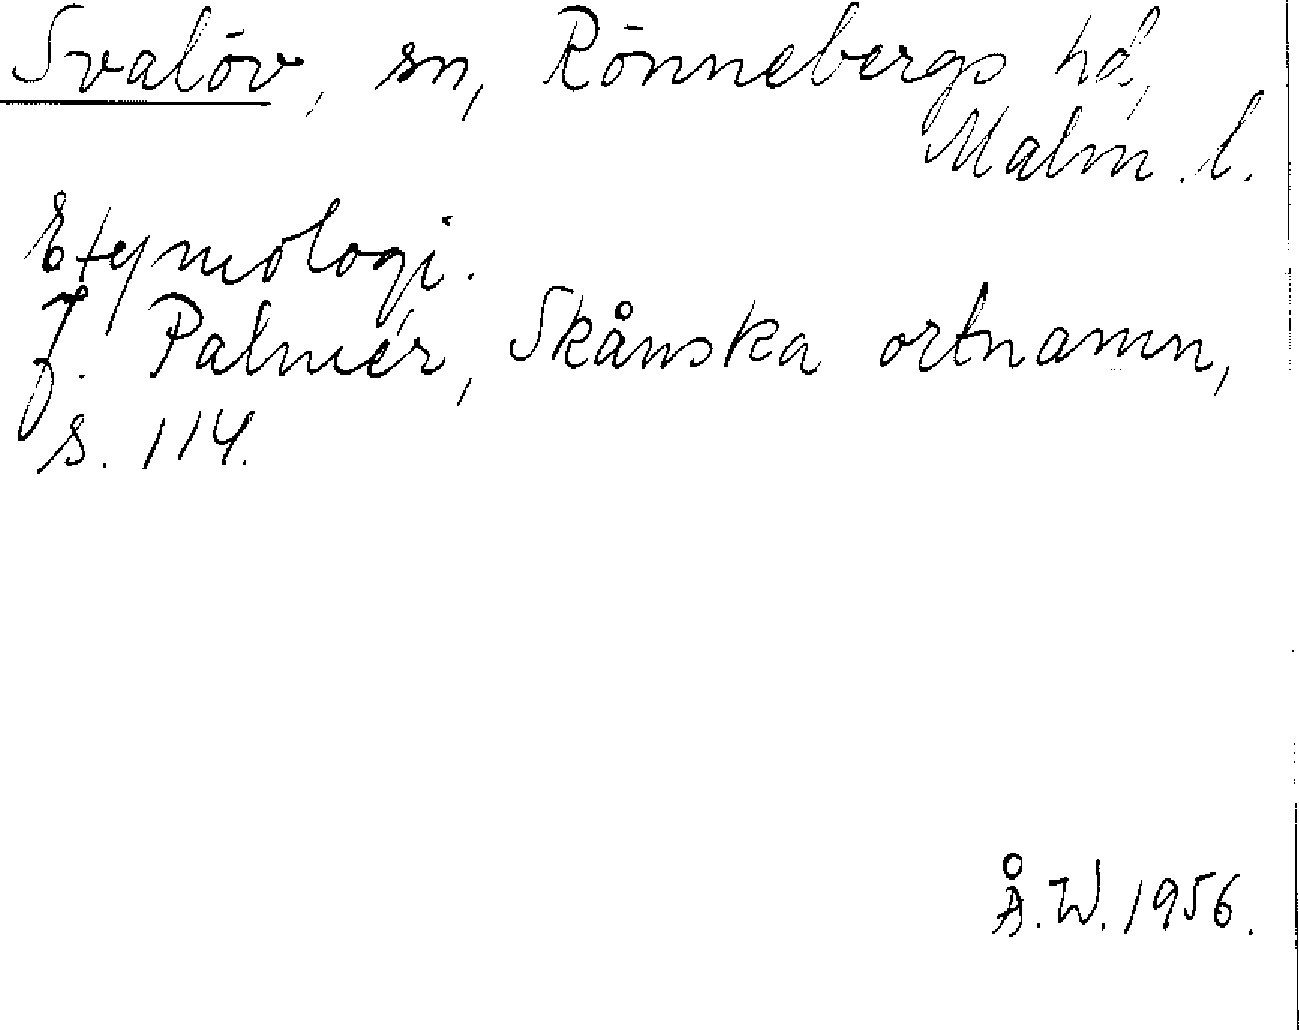 Svalöv, sn, Rönnebergs hd,
Malm. l.
Etymologi.
J. Palmér, Skånska ortnamn,
s. 114.
Å.W. 1956.